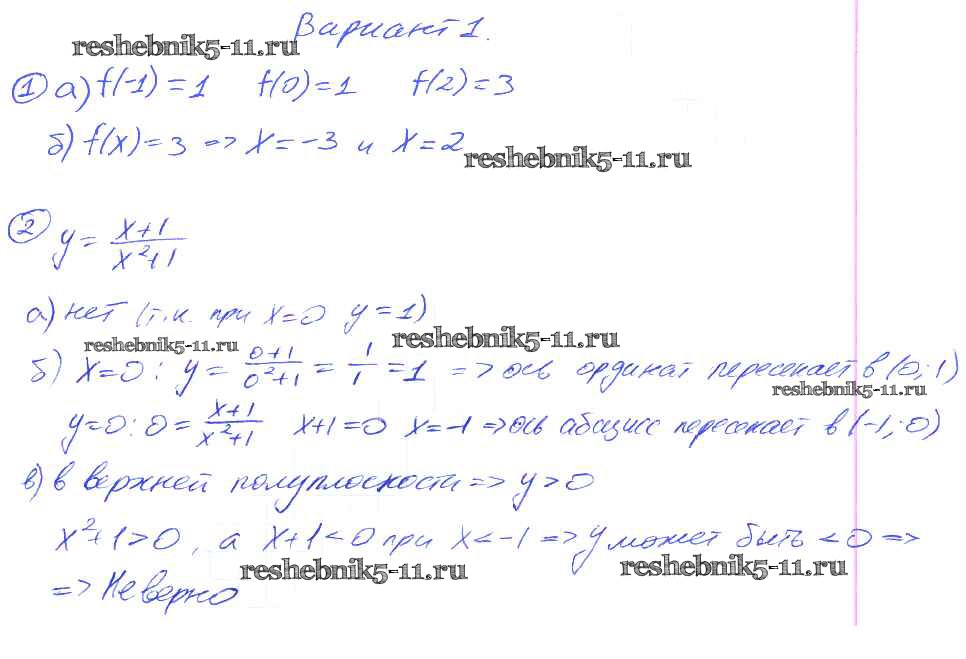 Вариант 1.
reshebnik5-11.ru
① а) f(-1) = 1 f(0) = 1 f(2) = 3
б) f(x) = 3 => x = -3 и x = 2
reshebnik5-11.ru
② y = (x+1)/(x²+1)
а) нет (т.к. при x=0 y=1)
reshebnik5-11.ru
reshebnik5-11.ru
б) x=0: y = (0+1)/(0²+1) = 1/1 = 1 => ось ординат пересекает в (0;1)
reshebnik5-11.ru
y=0: 0 = (x+1)/(x²+1) x+1=0 x=-1 => ось абсцисс пересекает в (-1;0)
в) в верхней полуплоскости => y>0
x²+1>0, а x+1<0 при x<-1 => y может быть <0 =>
reshebnik5-11.ru
reshebnik5-11.ru
=> Неверно